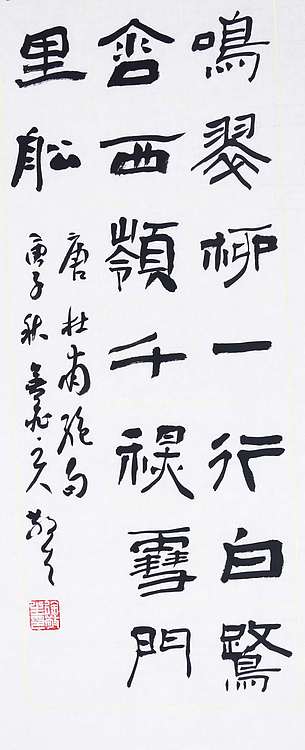 鳴翠柳一行白鷺
含西嶺千秋雪門
里船
唐杜甫絕句
庚子秋